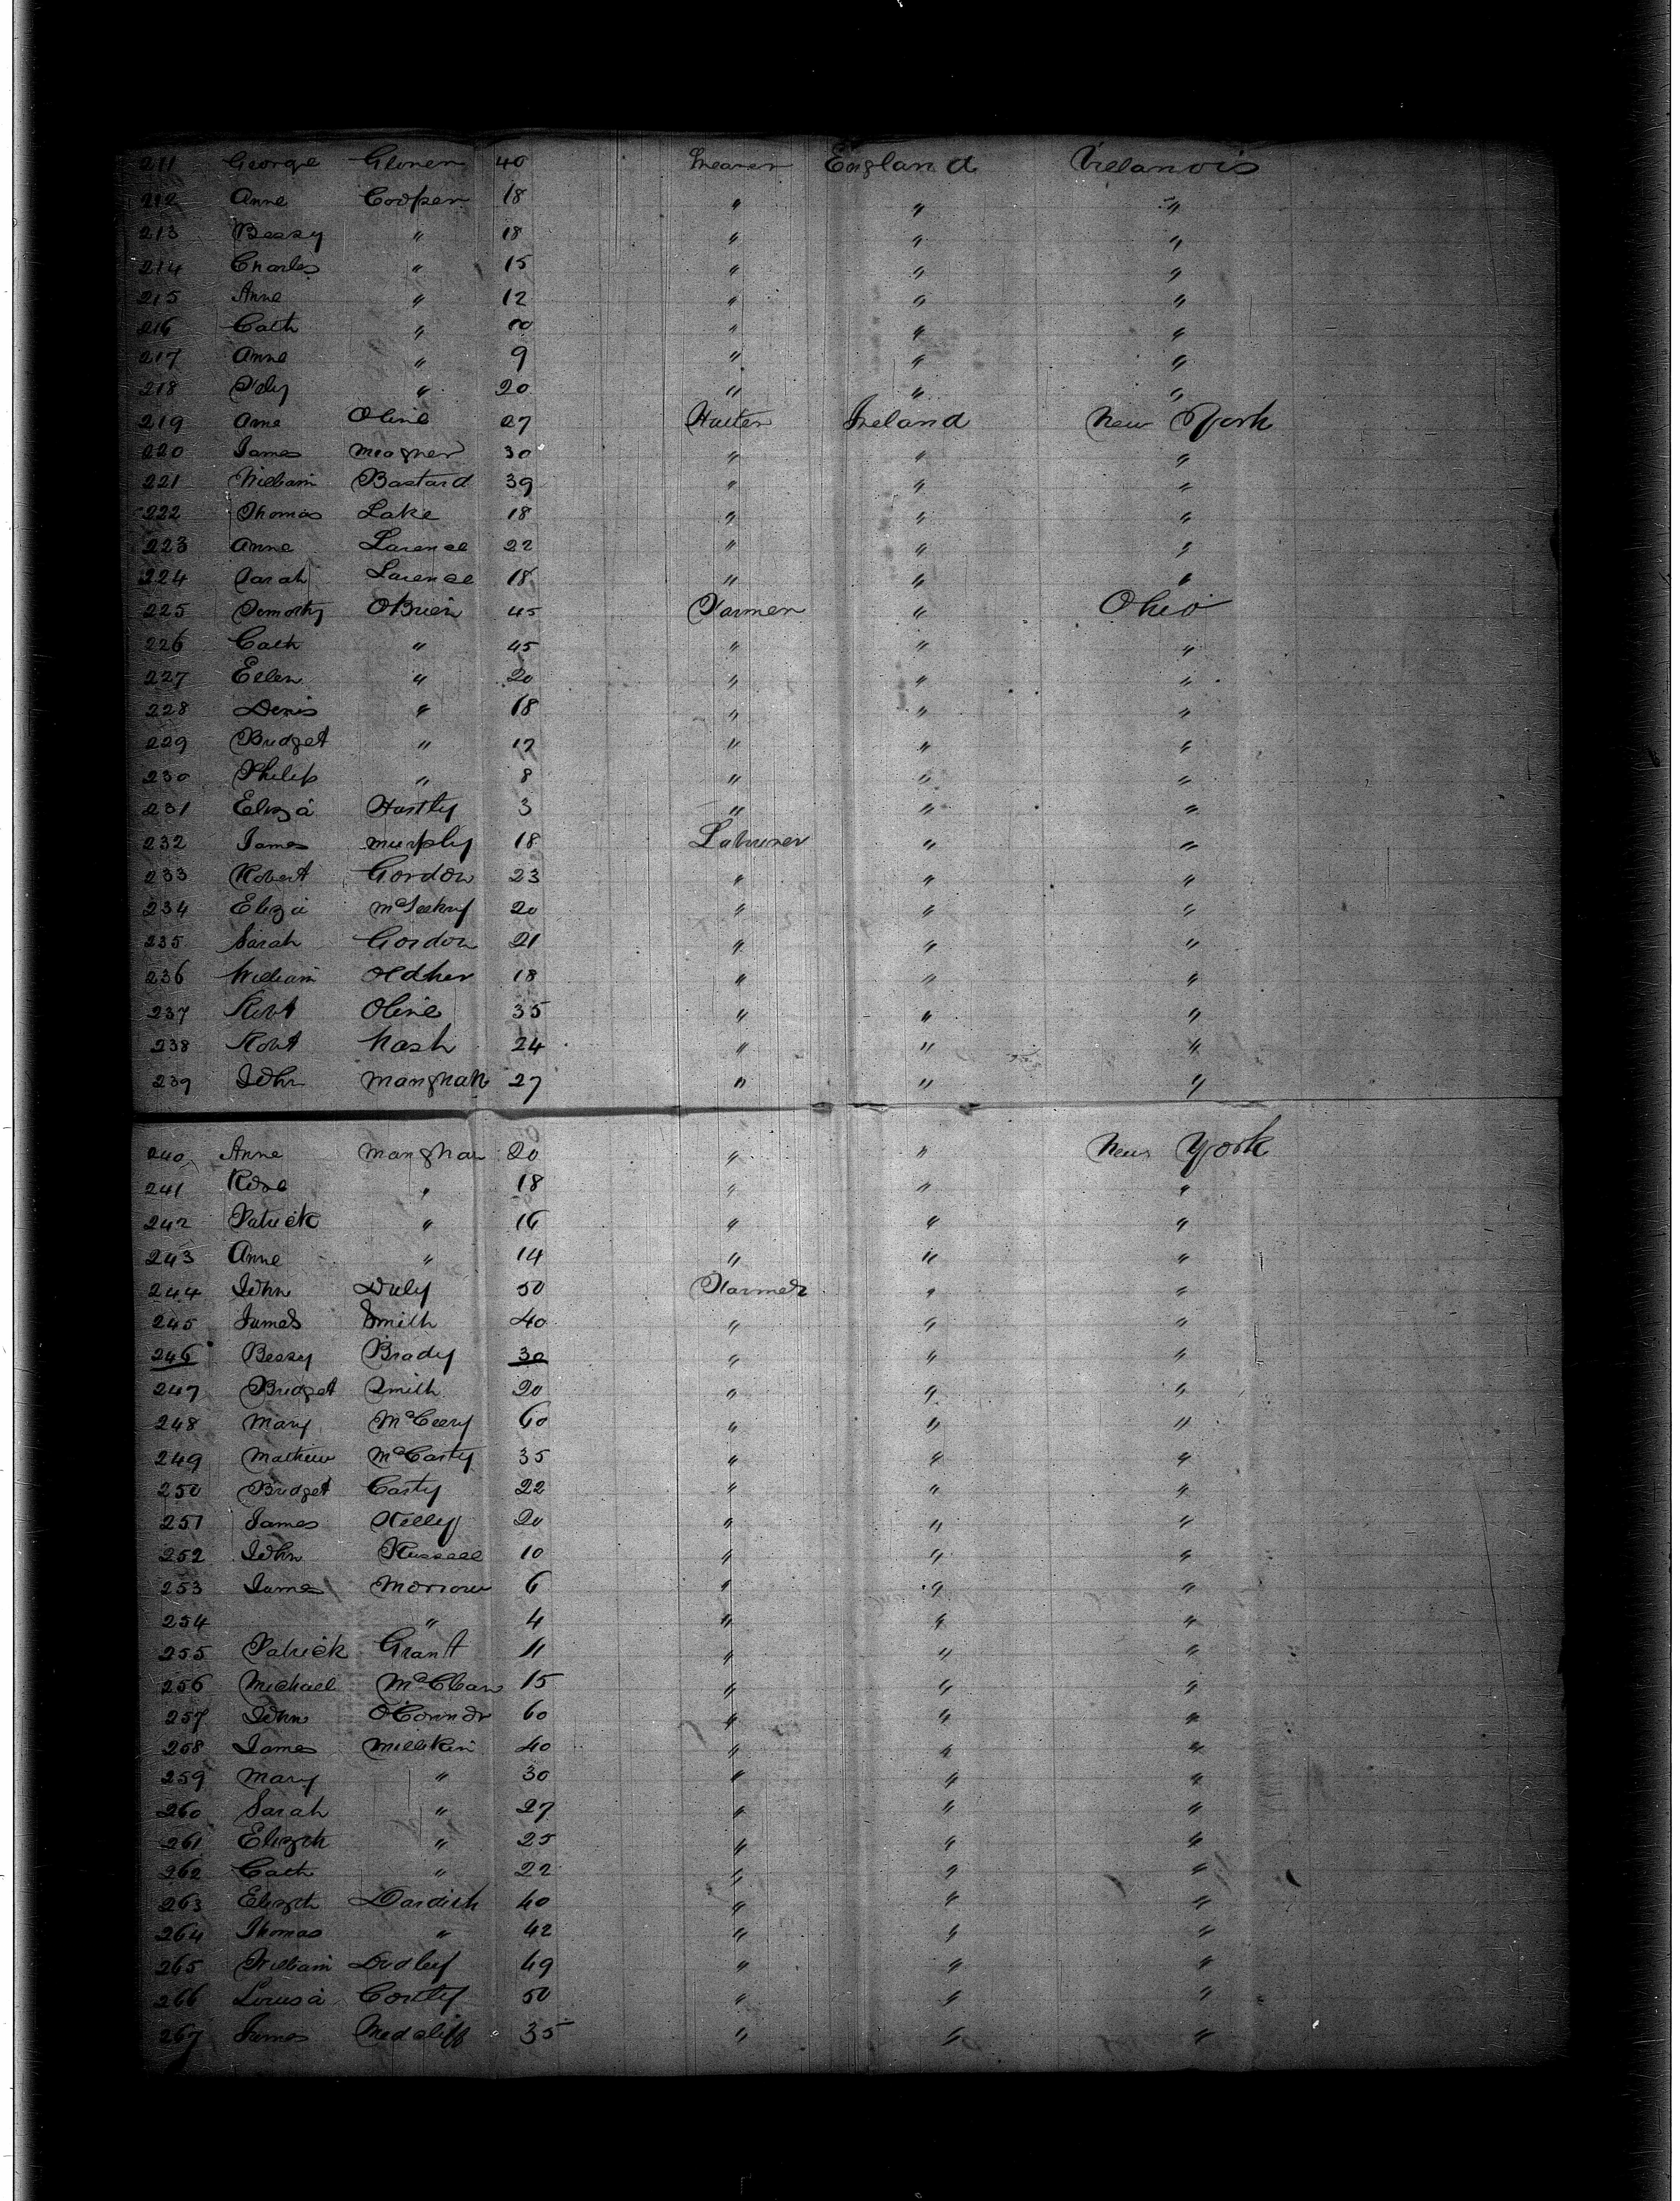 211 George Glonen 40 England Villanois
212 Anne Cooper 18 " " "
213 Bessy " 18 " " "
214 Charles " 15 " " "
215 Anne " 12 " " "
216 Cath " 10 " " "
217 Anne " 9 " " "
218 " 20 " " "
219 Anne Oline 27 Hatter Ireland New York
220 James Meagher 30 " " "
221 William Bastard 39 " " "
222 Thomas Lake 18 " " "
223 Anne Larence 22 " " "
224 Sarah Larence 18 " " "
225 Timothy OBrien 45 Farmer " Ohio
226 Cath " 45 " " "
227 Ellen " 20 " " "
228 Denis " 18 " " "
229 Bridget " 17 " " "
230 Philip " 8 " " "
231 Eliza Hartly 3 " " "
232 James Murphy 18 Labourer " "
233 Robert Gordon 23 " " "
234 Eliza 20 " " "
235 Sarah Gordon 21 " " "
236 William Oldher 18 " " "
237 Robt Oline 35 " " "
238 Robt Nash 24 " " "
239 John Manghan 27 " " "
240 Anne Manghan 20 " " New York
241 Rose " 18 " " "
242 Patrick " 16 " " "
243 Anne " 14 " " "
244 John Duly 50 Farmer " "
245 James Smith 40 " " "
246 Bessy Brady 30 " " "
247 Bridget Smith 20 " " "
248 Mary McCeery 60 " " "
249 Mathew McCarty 35 " " "
250 Bridget Carty 22 " " "
251 James Kelly 20 " " "
252 John Russell 10 " " "
253 James Morrow 6 " " "
254 " 4 " " "
255 Patrick Grant 11 " " "
256 Michael McClean 15 " " "
257 John OConnor 60 " " "
258 James Millikin 40 " " "
259 Mary " 30 " " "
260 Sarah " 27 " " "
261 Elizth " 25 " " "
262 Cath " 22 " " "
263 Elizth Dardish 40 " " "
264 Thomas " 42 " " "
265 William Dudley 49 " " "
266 Louisa Contly 50 " " "
267 James Medcliff 35 " " "